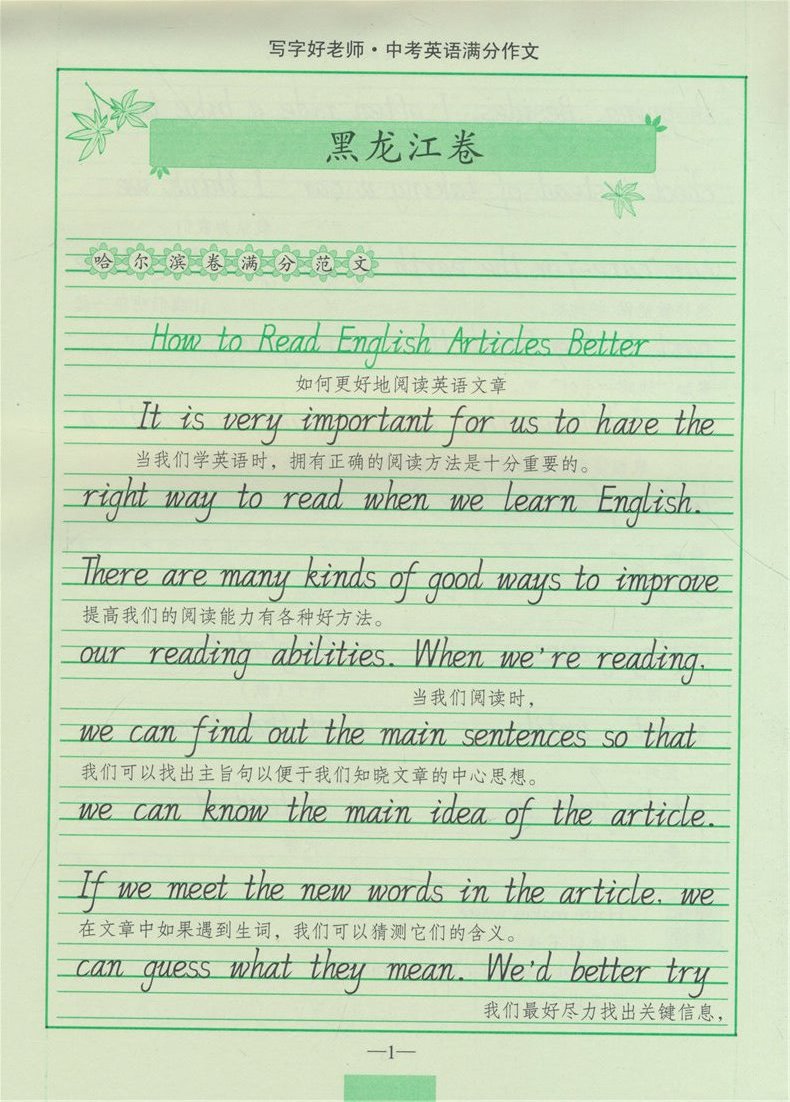 写字好老师·中考英语满分作文
黑龙江卷
哈尔滨卷满分范文
How to Read English Articles Better
如何更好地阅读英语文章
It is very important for us to have the
当我们学英语时，拥有正确的阅读方法是十分重要的。
right way to read when we learn English.
There are many kinds of good ways to improve
提高我们的阅读能力有各种好方法。
our reading abilities. When we're reading,
当我们阅读时，
we can find out the main sentences so that
我们可以找出主旨句以便于我们知晓文章的中心思想。
we can know the main idea of the article.
If we meet the new words in the article, we
在文章中如果遇到生词，我们可以猜测它们的含义。
can guess what they mean. We'd better try
我们最好尽力找出关键信息，
—1—